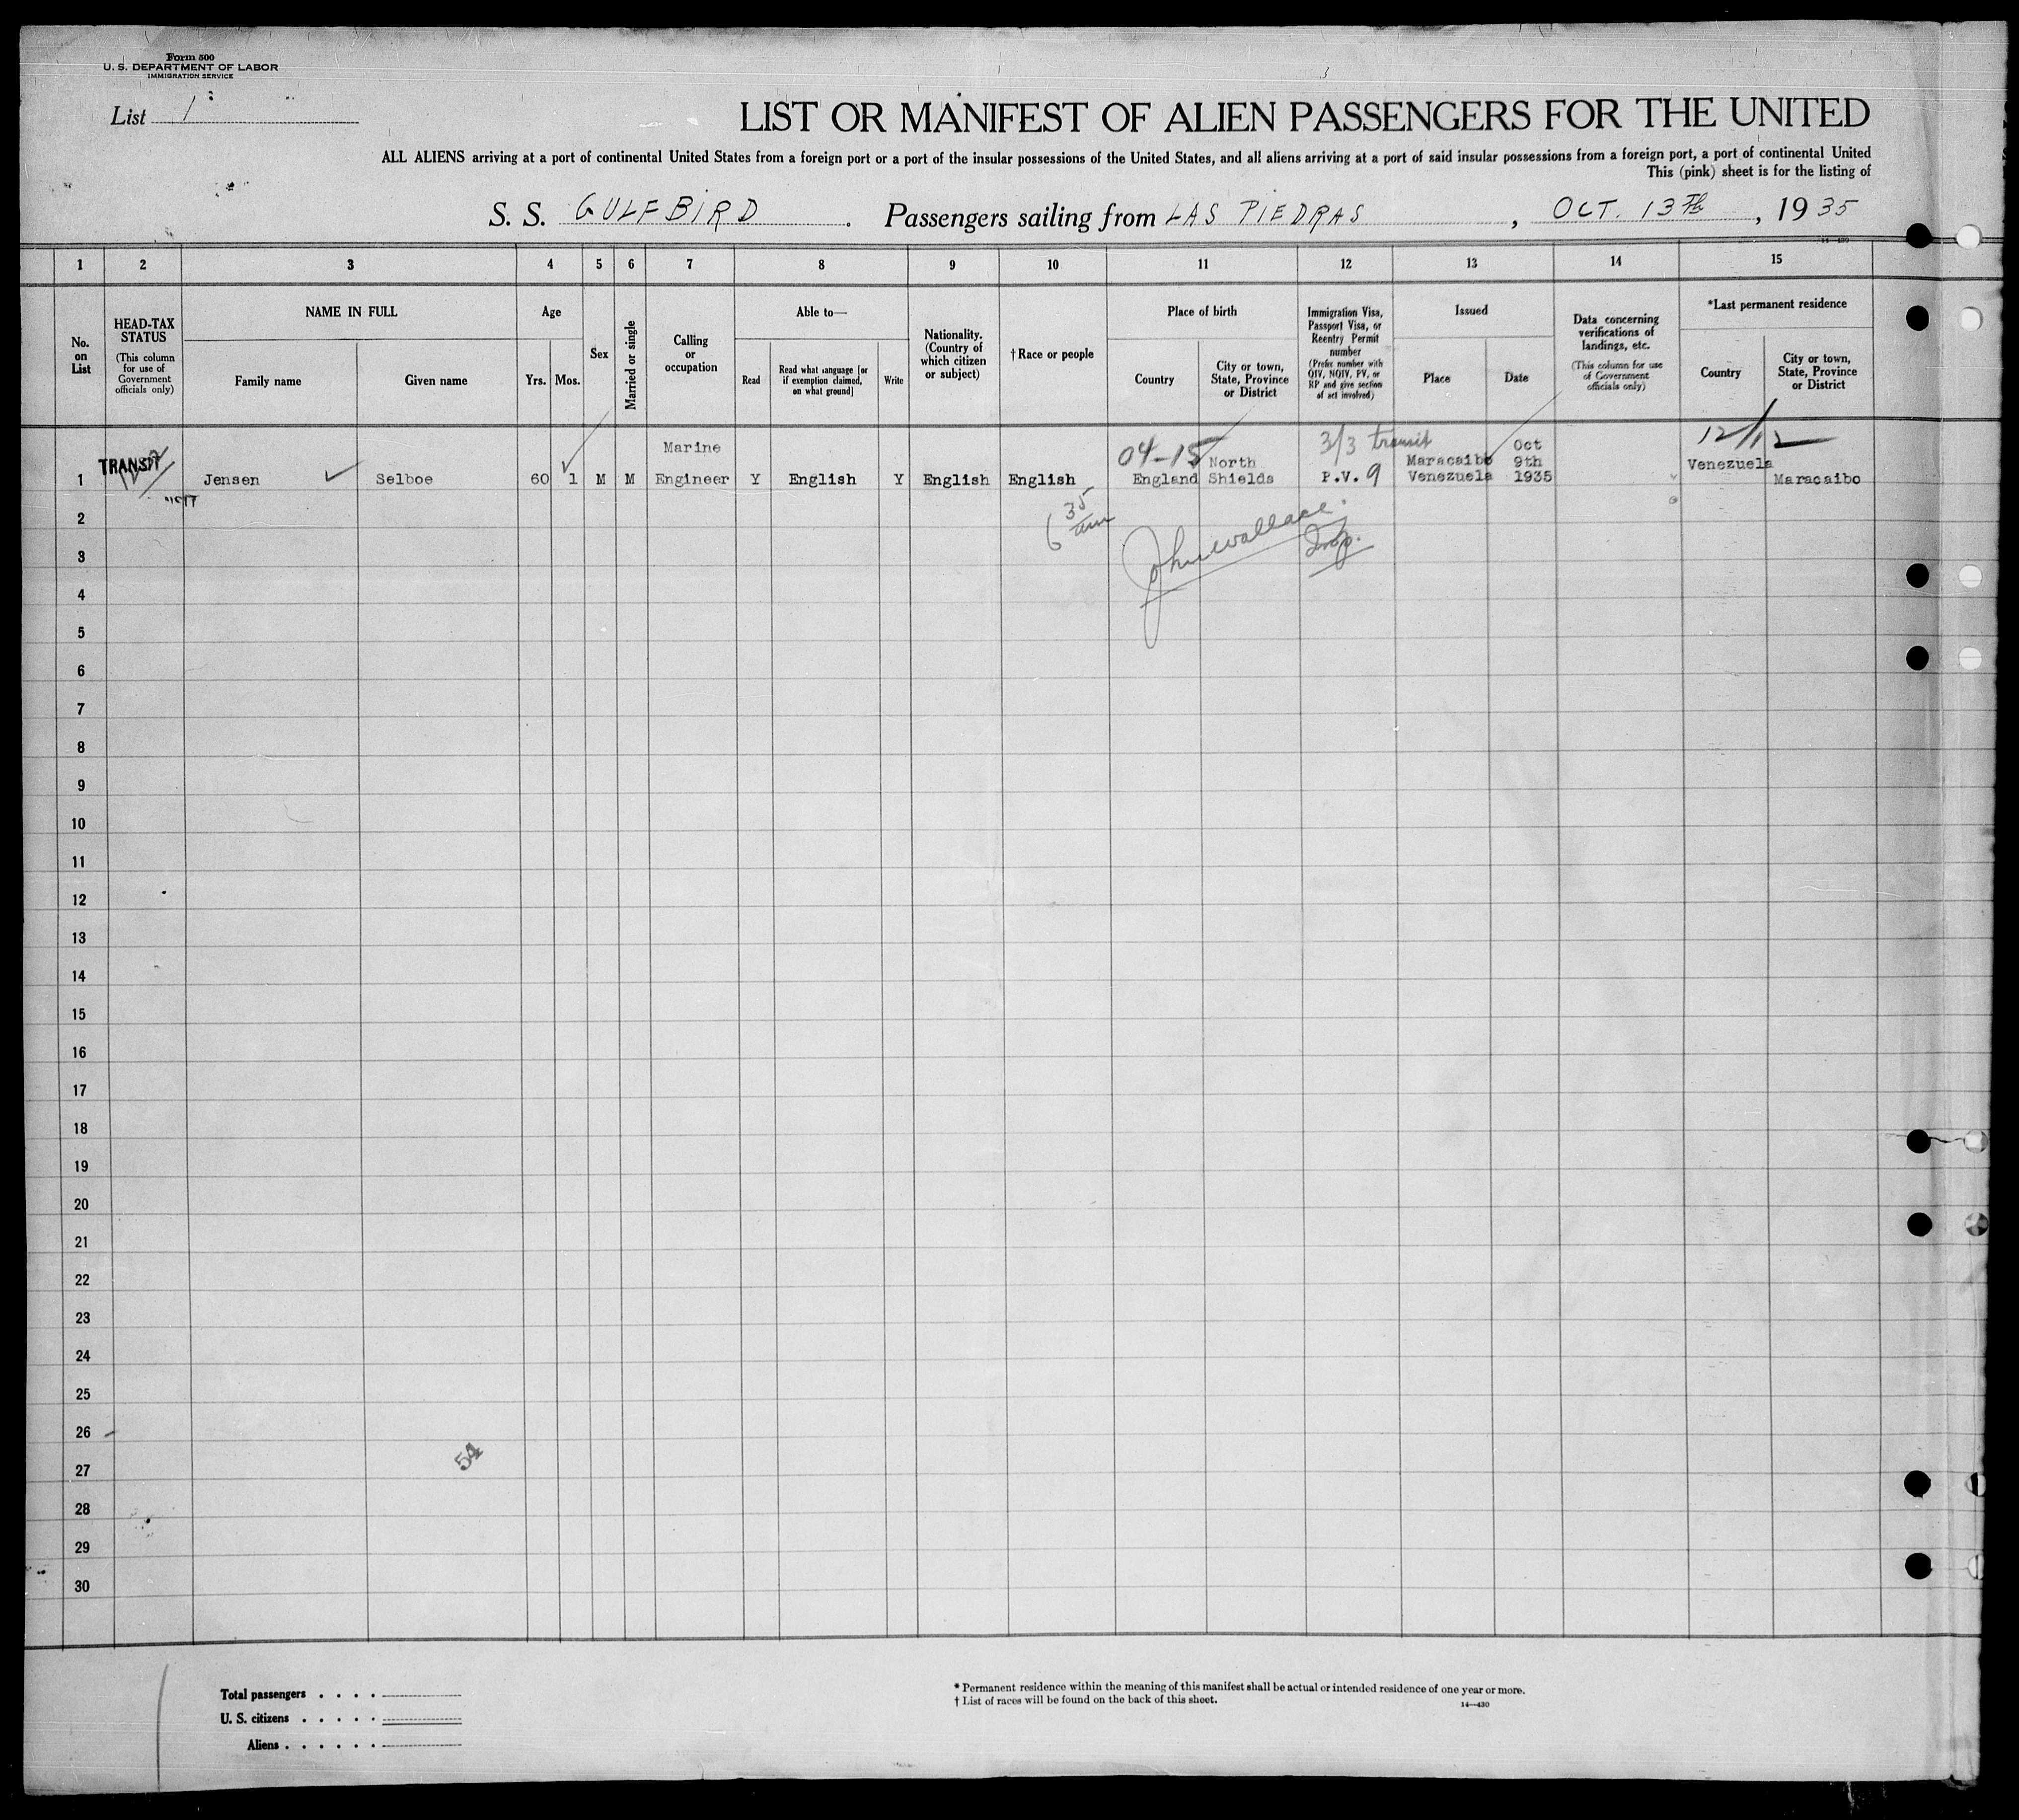 Form 500
U. S. DEPARTMENT OF LABOR
IMMIGRATION SERVICE
List 1
LIST OR MANIFEST OF ALIEN PASSENGERS FOR THE UNITED
ALL ALIENS arriving at a port of continental United States from a foreign port or a port of the insular possessions of the United States, and all aliens arriving at a port of said insular possessions from a foreign port, a port of continental United
This (pink) sheet is for the listing of
S. S. GULFBIRD. Passengers sailing from LAS PIEDRAS, OCT. 13th, 1935
1 2 3 4 5 6 7 8 9 10 11 12 13 14 15
No. on List
HEAD-TAX STATUS
(This column for use of Government officials only)
NAME IN FULL
Family name
Given name
Age
Yrs.
Mos.
Sex
Married or single
Calling or occupation
Able to—
Read
Read what language [or if exemption claimed, on what ground]
Write
Nationality. (Country of which citizen or subject)
†Race or people
Place of birth
Country
City or town, State, Province or District
Immigration Visa, Passport Visa, or Reentry Permit number
(Prefix number with QIV, NQIV, PV, or RP and give section of act involved)
Issued
Place
Date
Data concerning verifications of landings, etc.
(This column for use of Government officials only)
*Last permanent residence
Country
City or town, State, Province or District
1 TRANSIT Jensen Selboe 60 1 M M Marine Engineer Y English Y English English 04-15 England North Shields 3/3 transit P.V. 9 Maracaibo Venezuela Oct 9th 1935 12/12 Venezuela Maracaibo
6 35 am John Wallace Insp.
2
3
4
5
6
7
8
9
10
11
12
13
14
15
16
17
18
19
20
21
22
23
24
25
26
54
27
28
29
30
Total passengers
U. S. citizens
Aliens
* Permanent residence within the meaning of this manifest shall be actual or intended residence of one year or more.
† List of races will be found on the back of this sheet.
14—430